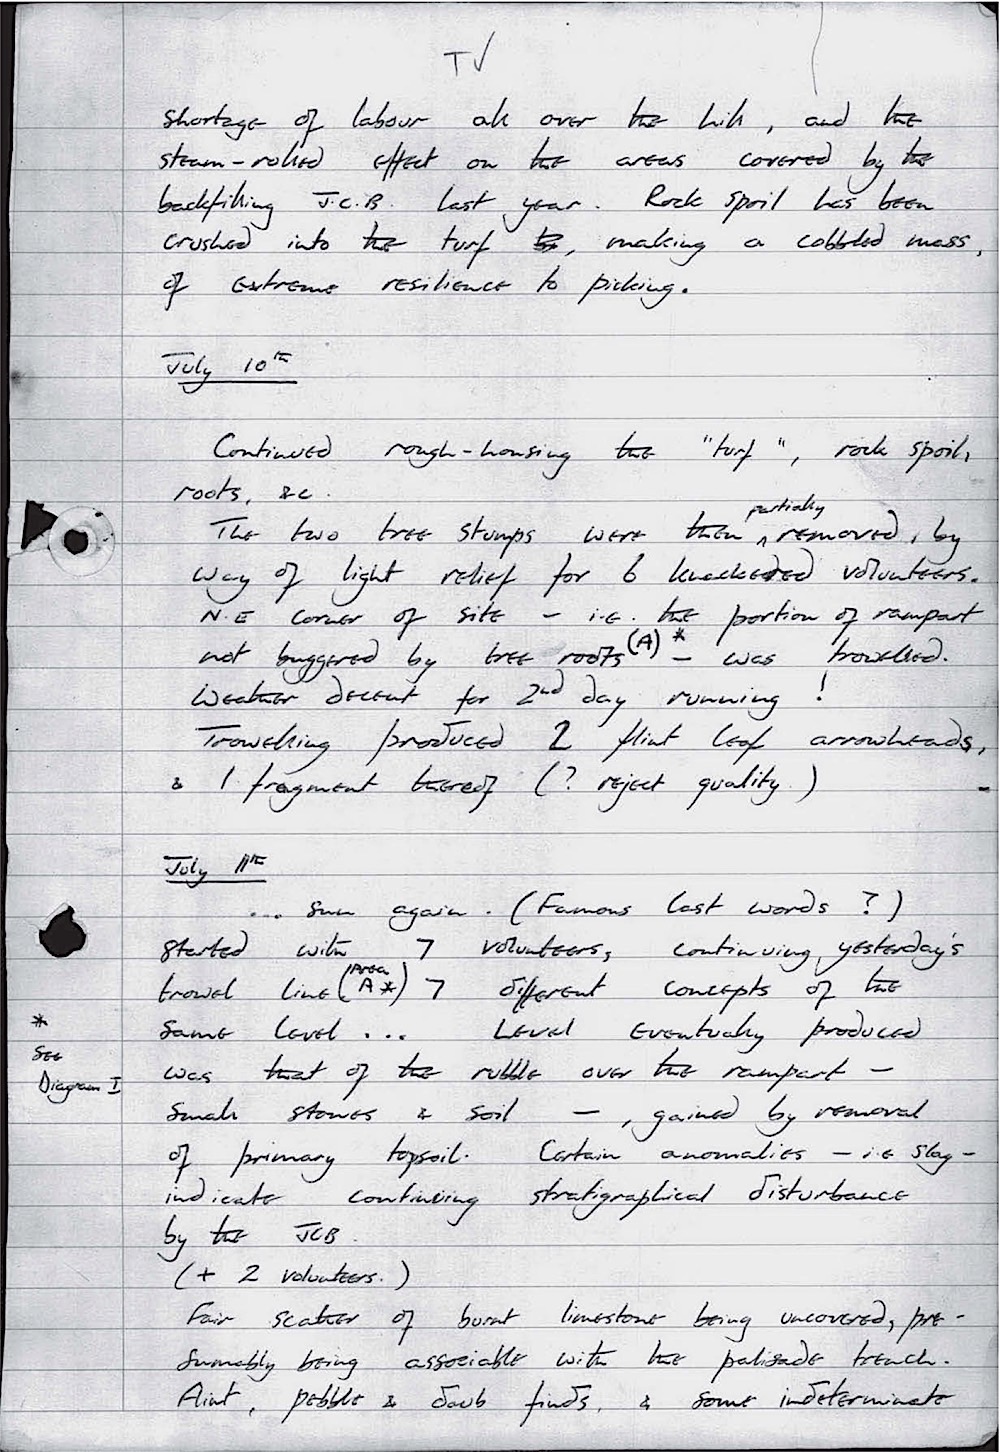 TV
shortage of labour all over the hill, and the
steam-rolled effect on the areas covered by the
backfilling J.C.B. last year. Rock spoil has been
crushed into the turf, making a cobbled mass,
of extreme resilience to picking.
July 10th
Continued rough-housing the "turf", rock spoil,
roots, &c.
The two tree stumps were then partially removed, by
way of light relief for 6 knackered volunteers.
N.E corner of site - i.e. the portion of rampart
not buggered by tree roots (A)* - was trowelled.
Weather decent for 2nd day running!
Trowelling produced 2 flint leaf arrowheads,
& 1 fragment thereof (? reject quality.)
July 11th
... sun again. (Famous last words?)
Started with 7 volunteers, continuing yesterday's
trowel line (Area A*) 7 different concepts of the
same level ... Level eventually produced
was that of the rubble over the rampart -
small stones & soil -, gained by removal
of primary topsoil. Certain anomalies - i.e slag -
indicate continuing stratigraphical disturbance
by the JCB.
(+ 2 volunteers.)
Fair scatter of burnt limestone being uncovered, pre-
sumably being associable with the palisade trench.
Flint, pebble & daub finds, & some indeterminate
*
See
Diagram I